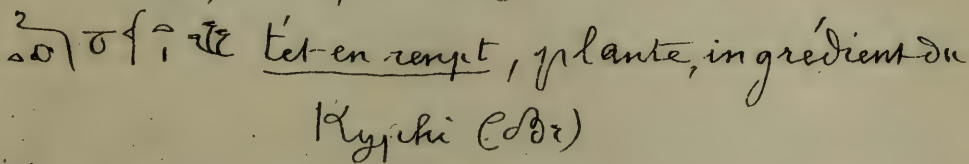 tet-en renpt, plante, ingrédient du
Kyphi (Br)